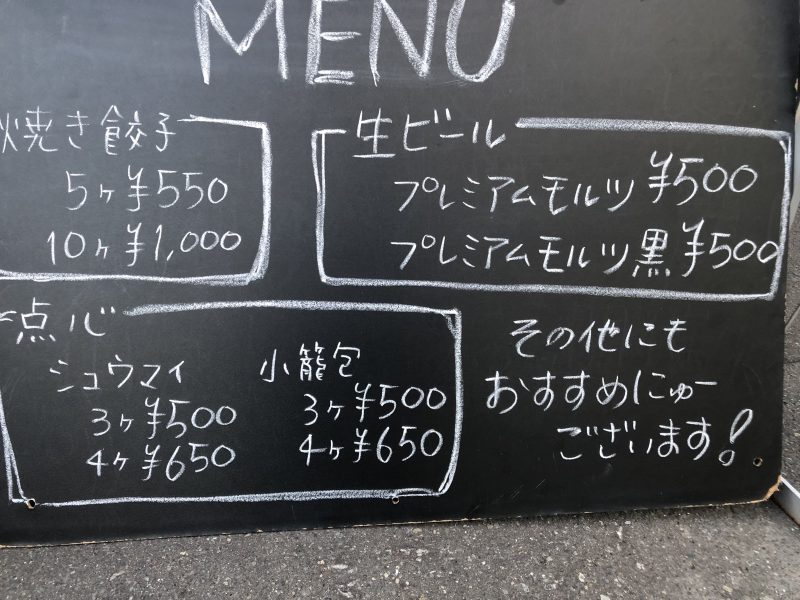 MENU
焼き餃子
5ヶ ¥550
10ヶ ¥1,000
生ビール
プレミアムモルツ ¥500
プレミアムモルツ黒 ¥500
点心
シュウマイ
3ヶ ¥500
4ヶ ¥650
小籠包
3ヶ ¥500
4ヶ ¥650
その他にも
おすすめにゅー
ございます!